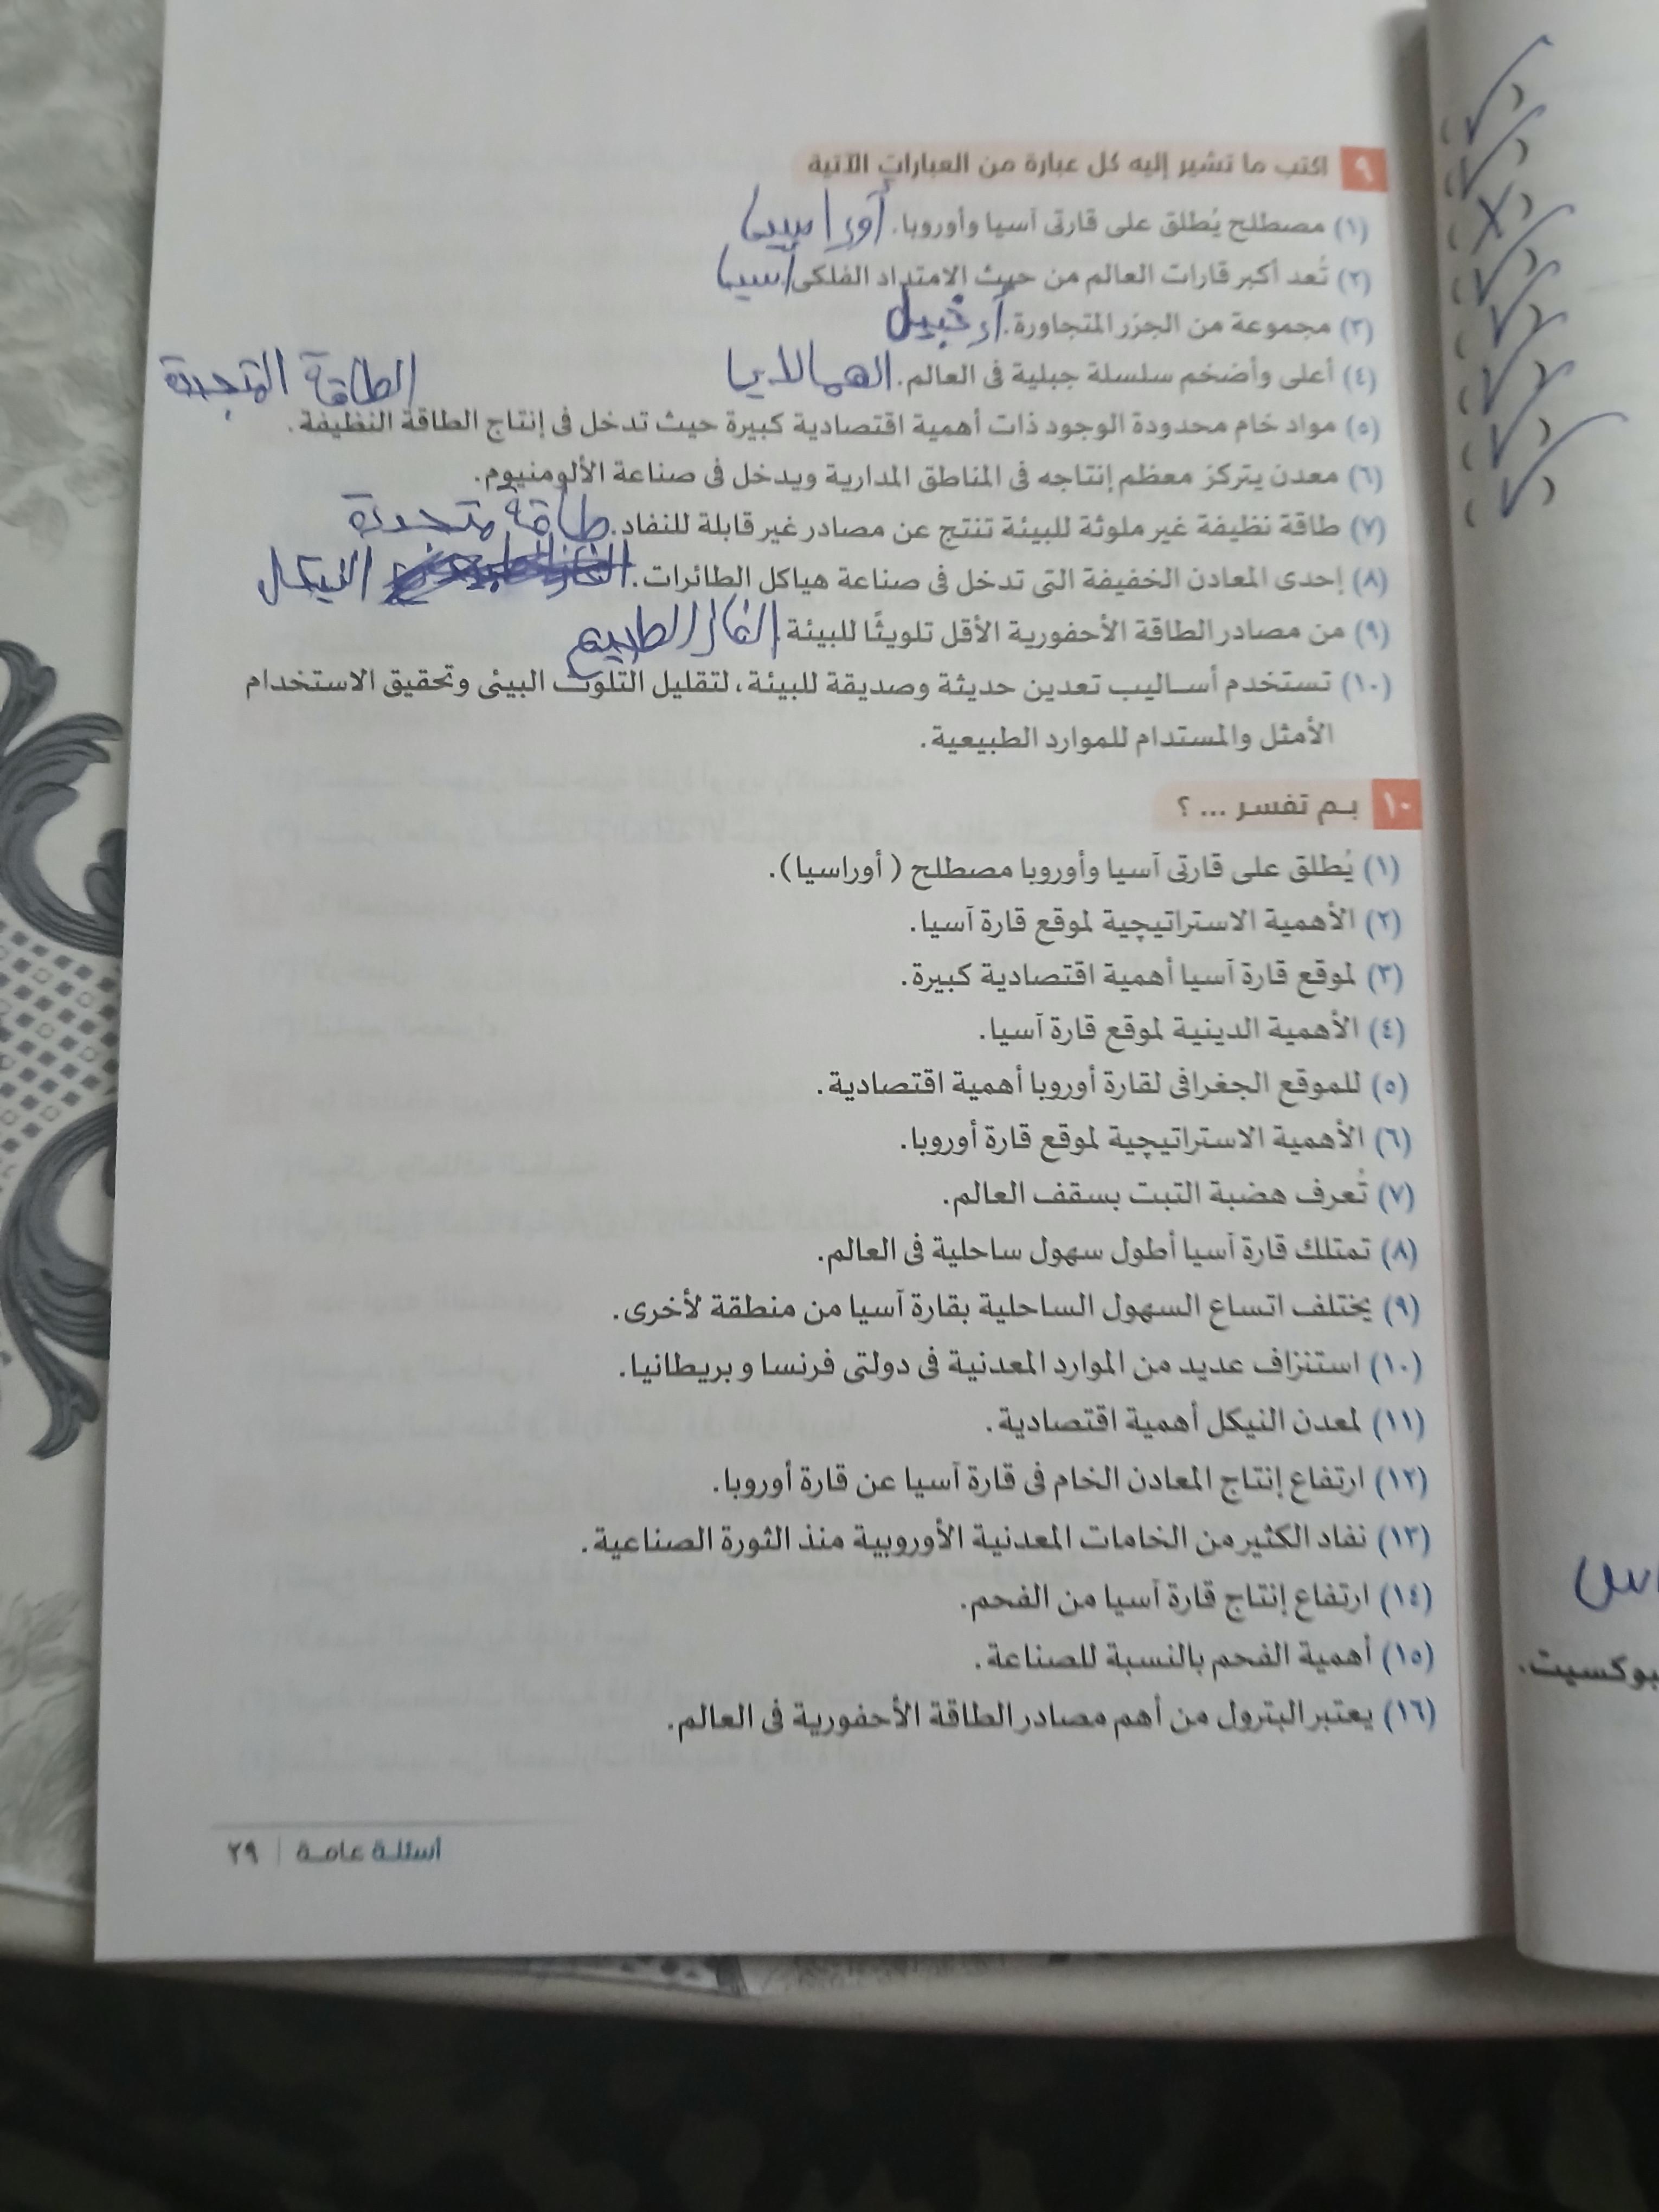 ٩ اكتب ما تشير إليه كل عبارة من العبارات الآتية
(١) مصطلح يُطلق على قارتى آسيا وأوروبا. أوراسيا
(٢) تُعد أكبر قارات العالم من حيث الامتداد الفلكى. آسيا
(٣) مجموعة من الجزر المتجاورة. أرخبيل
(٤) أعلى وأضخم سلسلة جبلية فى العالم. الهمالايا
الطاقة المتجددة
(٥) مواد خام محدودة الوجود ذات أهمية اقتصادية كبيرة حيث تدخل فى إنتاج الطاقة النظيفة.
(٦) معدن يتركز معظم إنتاجه فى المناطق المدارية ويدخل فى صناعة الألومنيوم.
(٧) طاقة نظيفة غير ملوثة للبيئة تنتج عن مصادر غير قابلة للنفاد. طاقة متجددة
(٨) إحدى المعادن الخفيفة التى تدخل فى صناعة هياكل الطائرات. النيكل
(٩) من مصادر الطاقة الأحفورية الأقل تلويثًا للبيئة. الغاز الطبيعي
(١٠) تستخدم أساليب تعدين حديثة وصديقة للبيئة، لتقليل التلوث البيئى وتحقيق الاستخدام
الأمثل والمستدام للموارد الطبيعية.
١٠ بم تفسر ... ؟
(١) يُطلق على قارتى آسيا وأوروبا مصطلح (أوراسيا).
(٢) الأهمية الاستراتيچية لموقع قارة آسيا.
(٣) لموقع قارة آسيا أهمية اقتصادية كبيرة.
(٤) الأهمية الدينية لموقع قارة آسيا.
(٥) للموقع الجغرافى لقارة أوروبا أهمية اقتصادية.
(٦) الأهمية الاستراتيچية لموقع قارة أوروبا.
(٧) تُعرف هضبة التبت بسقف العالم.
(٨) تمتلك قارة آسيا أطول سهول ساحلية فى العالم.
(٩) يختلف اتساع السهول الساحلية بقارة آسيا من منطقة لأخرى.
(١٠) استنزاف عديد من الموارد المعدنية فى دولتى فرنسا وبريطانيا.
(١١) لمعدن النيكل أهمية اقتصادية.
(١٢) ارتفاع إنتاج المعادن الخام فى قارة آسيا عن قارة أوروبا.
(١٣) نفاد الكثير من الخامات المعدنية الأوروبية منذ الثورة الصناعية.
(١٤) ارتفاع إنتاج قارة آسيا من الفحم.
(١٥) أهمية الفحم بالنسبة للصناعة.
(١٦) يعتبر البترول من أهم مصادر الطاقة الأحفورية فى العالم.
أسئلة عامة | ٢٩
بوكسيت.